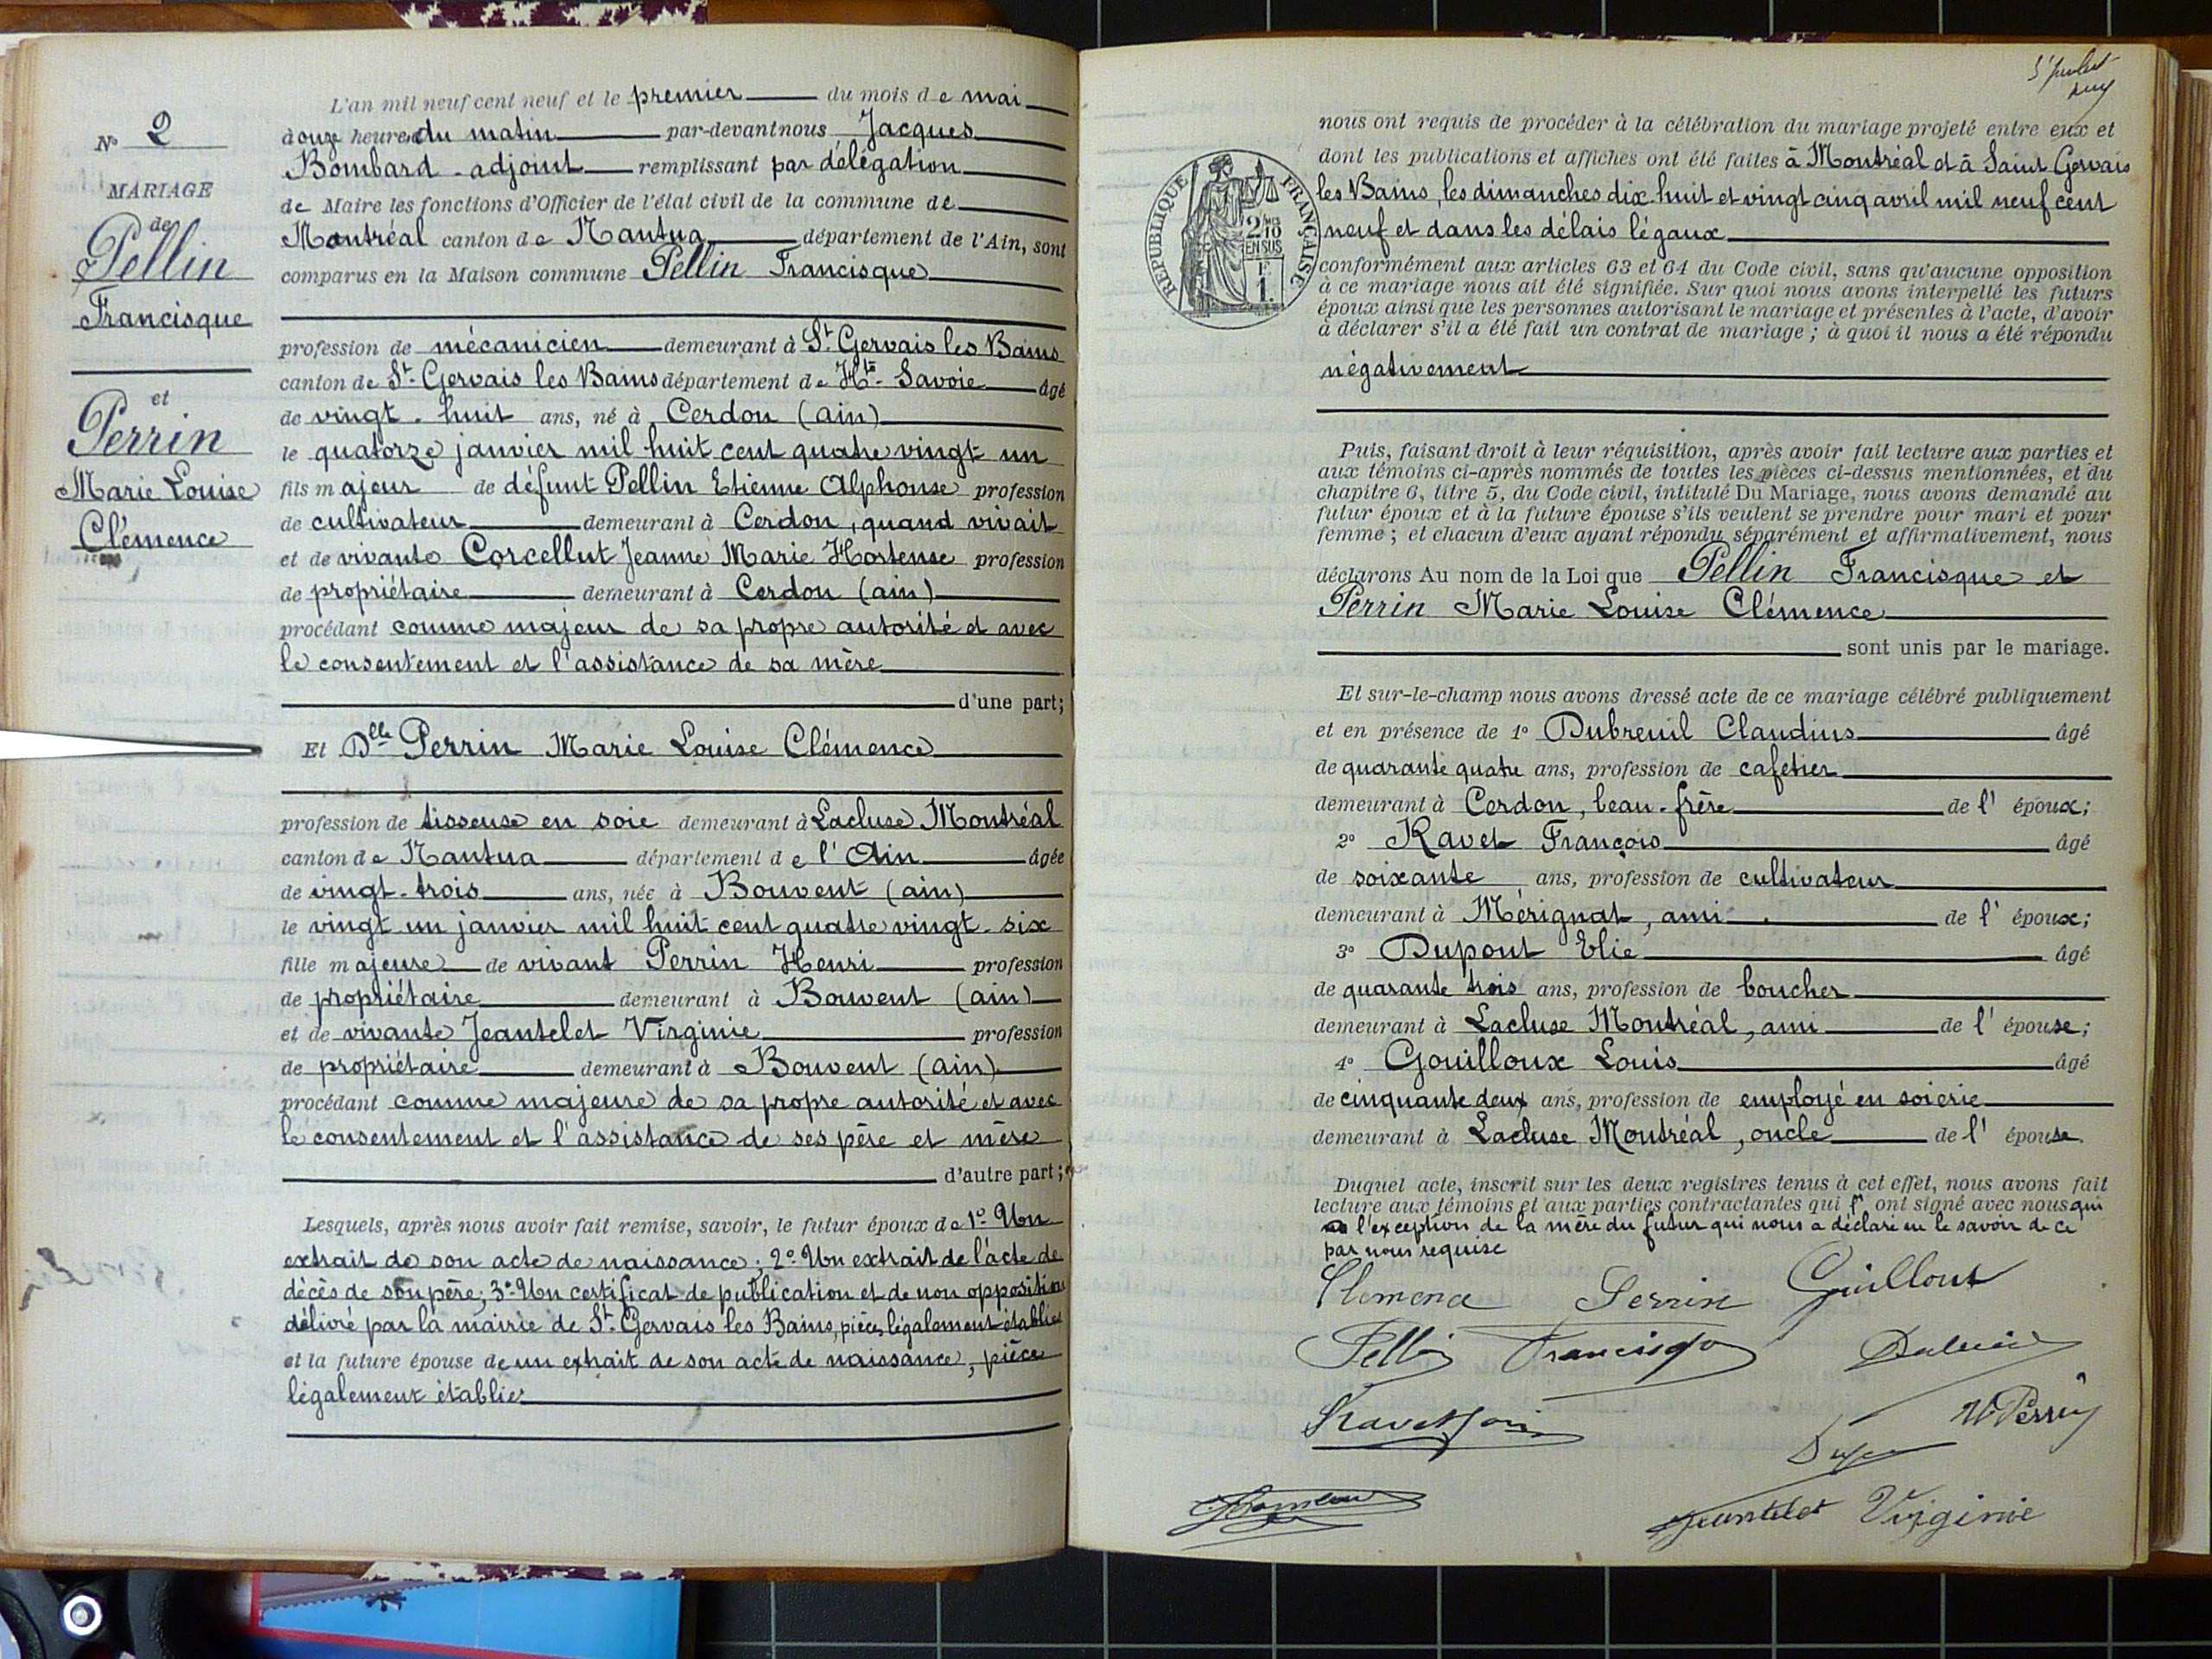 Nº 2
MARIAGE
de
Pellin
Francisque
et
Perrin
Marie Louise
Clémence
L'an mil neuf cent neuf et le premier du mois de mai
à onze heures du matin par-devant nous Jacques
Bombard adjoint remplissant par délégation
de Maire les fonctions d'Officier de l'état civil de la commune de
Montréal canton de Nantua département de l'Ain, sont
comparus en la Maison commune Pellin Francisque
profession de mécanicien demeurant à St. Gervais les Bains
canton de St. Gervais les Bains département de Hte. Savoie âgé
de vingt-huit ans, né à Cerdon (ain)
le quatorze janvier mil huit cent quatre vingt un
fils majeur de défunt Pellin Etienne Alphonse profession
de cultivateur demeurant à Cerdon, quand vivait
et de vivante Corcellut Jeanne Marie Hortense profession
de propriétaire demeurant à Cerdon (ain)
procédant comme majeur de sa propre autorité et avec
le consentement et l'assistance de sa mère
d'une part;
Et Dlle Perrin Marie Louise Clémence
profession de tisseuse en soie demeurant à Lacluse Montréal
canton de Nantua département de l'Ain âgée
de vingt-trois ans, née à Bouvent (ain)
le vingt un janvier mil huit cent quatre vingt-six
fille majeure de vivant Perrin Henri profession
de propriétaire demeurant à Bouvent (ain)
et de vivante Jeantelet Virginie profession
de propriétaire demeurant à Bouvent (ain)
procédant comme majeure de sa propre autorité et avec
le consentement et l'assistance de ses père et mère
d'autre part;
Lesquels, après nous avoir fait remise, savoir, le futur époux de 1º Un
extrait de son acte de naissance; 2º Un extrait de l'acte de
décès de son père; 3º Un certificat de publication et de non opposition
délivré par la mairie de St. Gervais les Bains, pièces légalement établies
et la future épouse de un extrait de son acte de naissance, pièce
légalement établie
RÉPUBLIQUE FRANÇAISE
2/10
EN SUS
F.
1.
nous ont requis de procéder à la célébration du mariage projeté entre eux et
dont les publications et affiches ont été faites à Montréal et à Saint Gervais
les Bains, les dimanches dix-huit et vingt cinq avril mil neuf cent
neuf et dans les délais légaux
conformément aux articles 63 et 64 du Code civil, sans qu'aucune opposition
à ce mariage nous ait été signifiée. Sur quoi nous avons interpellé les futurs
époux ainsi que les personnes autorisant le mariage et présentes à l'acte, d'avoir
à déclarer s'il a été fait un contrat de mariage; à quoi il nous a été répondu
négativement
Puis, faisant droit à leur réquisition, après avoir fait lecture aux parties et
aux témoins ci-après nommés de toutes les pièces ci-dessus mentionnées, et du
chapitre 6, titre 5, du Code civil, intitulé Du Mariage, nous avons demandé au
futur époux et à la future épouse s'ils veulent se prendre pour mari et pour
femme; et chacun d'eux ayant répondu séparément et affirmativement, nous
déclarons Au nom de la Loi que Pellin Francisque et
Perrin Marie Louise Clémence
sont unis par le mariage.
Et sur-le-champ nous avons dressé acte de ce mariage célébré publiquement
et en présence de 1º Dubreuil Claudius âgé
de quarante quatre ans, profession de cafetier
demeurant à Cerdon, beau-frère de l'époux;
2º Ravet François âgé
de soixante ans, profession de cultivateur
demeurant à Mérignat, ami de l'époux;
3º Dupont Elie âgé
de quarante trois ans, profession de boucher
demeurant à Lacluse Montréal, ami de l'épouse;
4º Gouilloux Louis âgé
de cinquante deux ans, profession de employé en soierie
demeurant à Lacluse Montréal, oncle de l'épouse.
Duquel acte, inscrit sur les deux registres tenus à cet effet, nous avons fait
lecture aux témoins et aux parties contractantes qui ont signé avec nous qui
à l'exception de la mère du futur qui nous a déclaré ne le savoir de ce
par nous requise
Clemence Perrin Guilloux
Pellin Francisque
H Perrin
Jeantelet Virginie